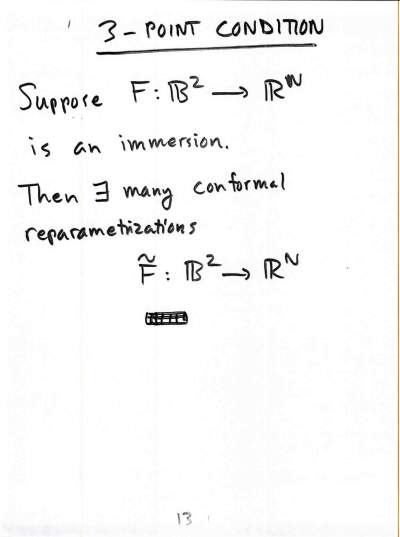 3-POINT CONDITION
Suppose F: 𝔹² → ℝᴺ
is an immersion.
Then ∃ many conformal
reparametrizations
F̃ : 𝔹² → ℝᴺ
13